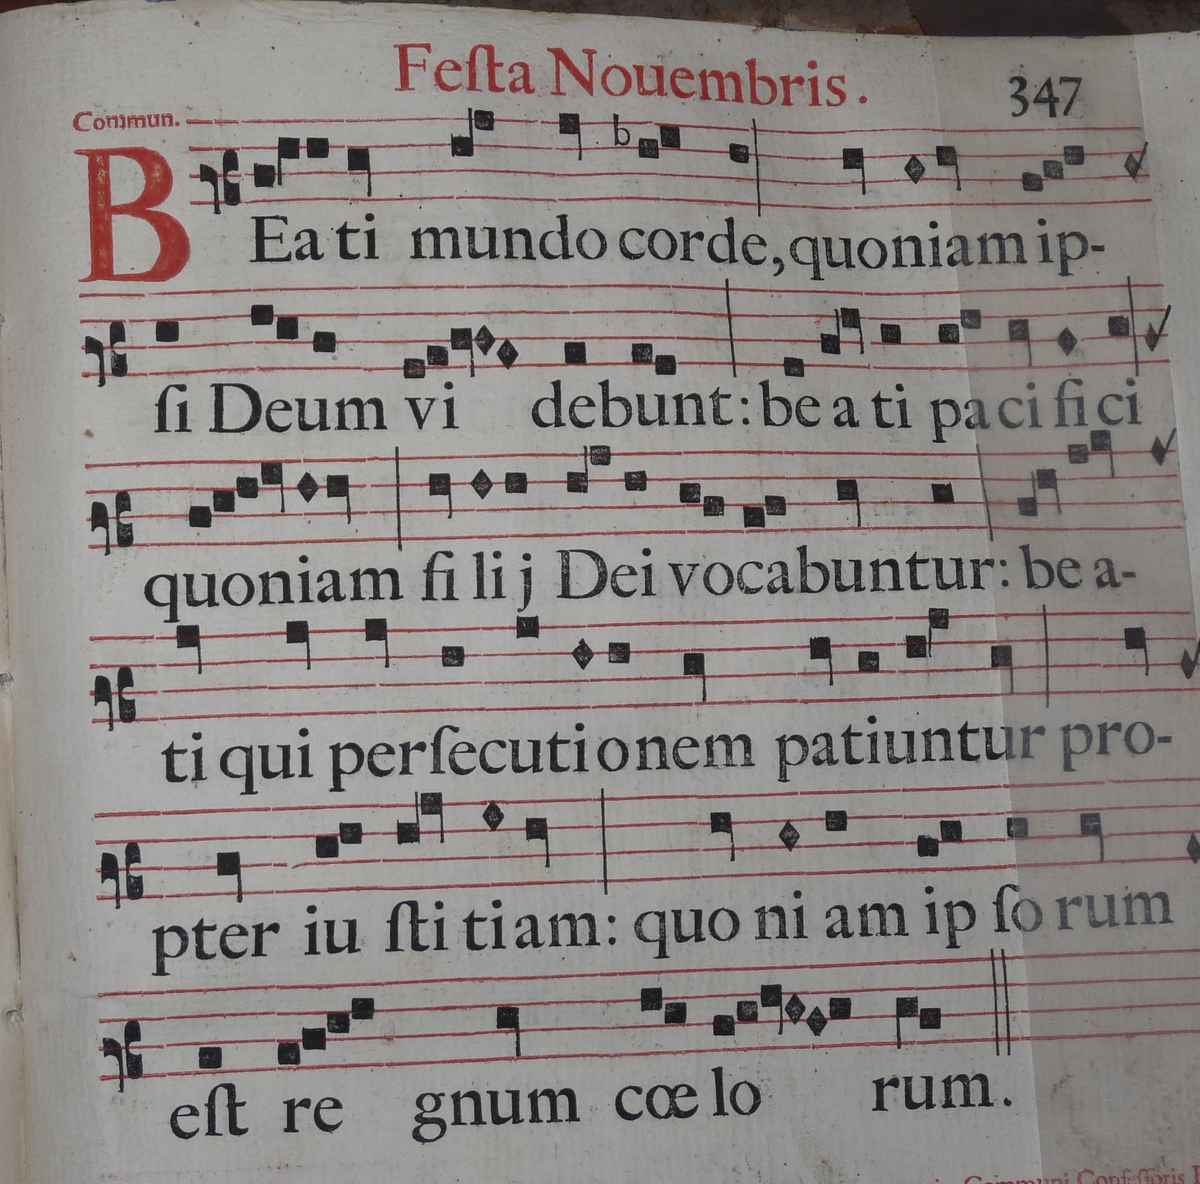 Feſta Nouembris. 347
Commun.
BEati mundo corde, quoniam ip-
ſi Deum vi debunt: be a ti pa ci fi ci
quoniam fi li j Dei vocabuntur: be a-
ti qui perſecutionem patiuntur pro-
pter iu ſti tiam: quo ni am ip ſo rum
eſt re gnum cœ lo rum.
Communi Confeſſoris